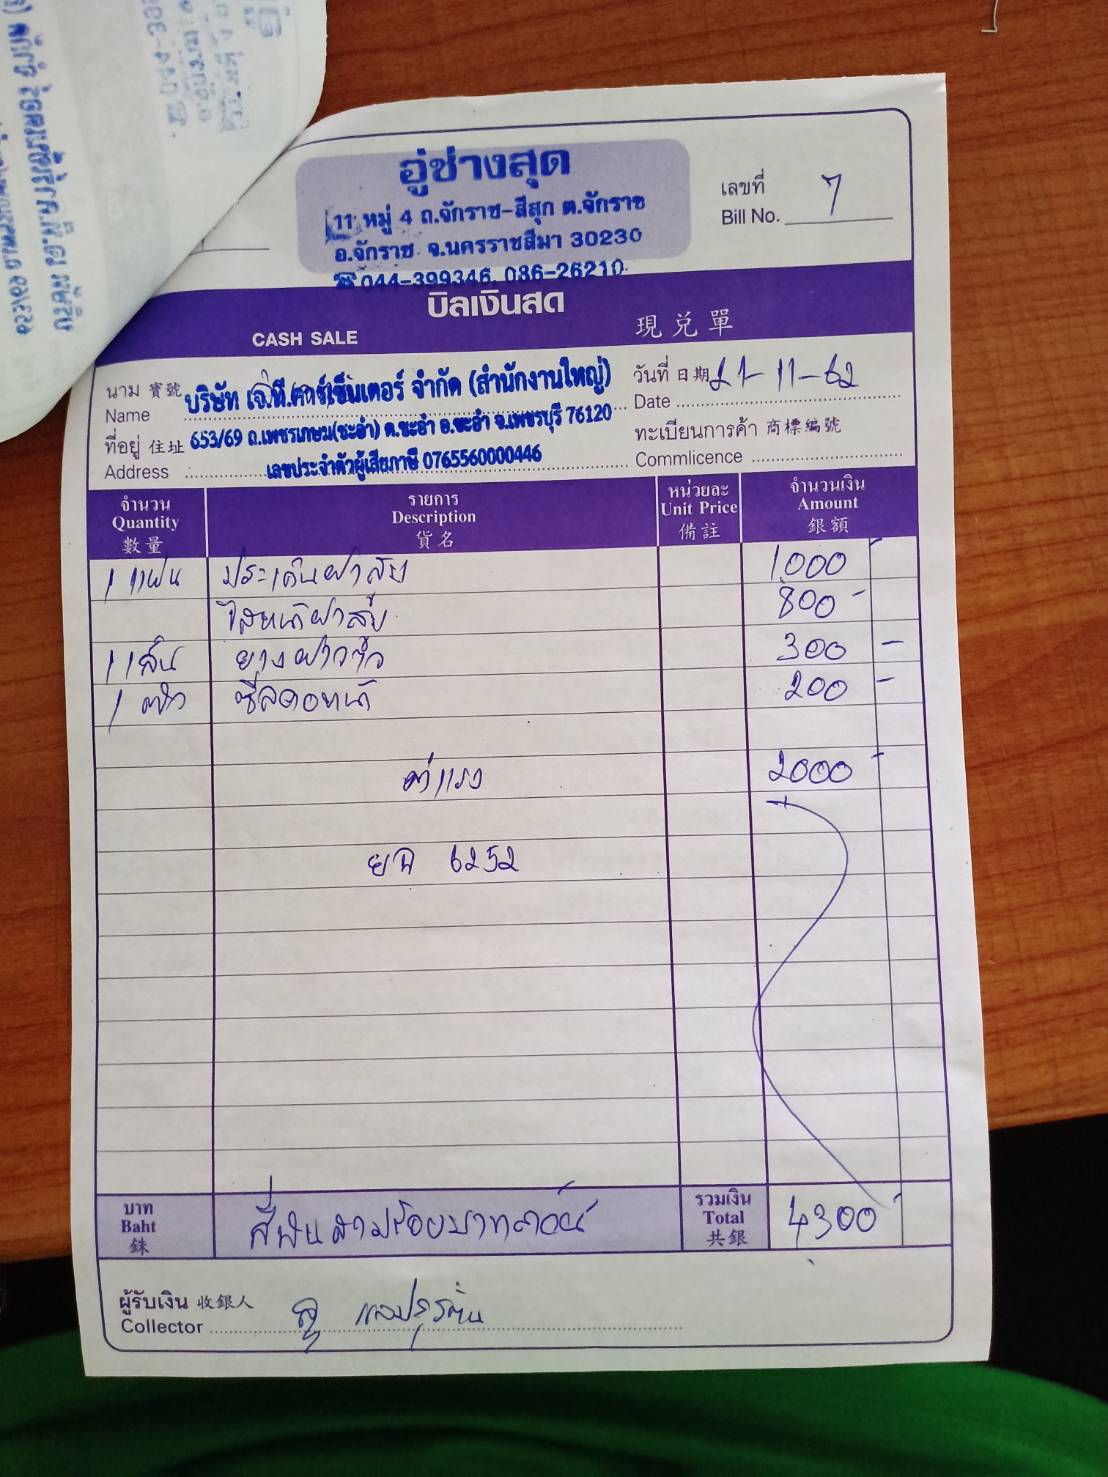 อู่ช่างสุด
11 หมู่ 4 ถ.จักราช-สีสุก ต.จักราช
อ.จักราช จ.นครราชสีมา 30230
☎044-399346, 086-26210
เลขที่ 7
Bill No.
บิลเงินสด
CASH SALE 現兑單
นาม 寳號 บริษัท เจ.พี.คาร์เซ็นเตอร์ จำกัด (สำนักงานใหญ่)
Name
วันที่ 日期 21-11-62
Date
ที่อยู่ 住址 653/69 ถ.เพชรเกษม(ชะอำ) ต.ชะอำ อ.ชะอำ จ.เพชรบุรี 76120
Address เลขประจำตัวผู้เสียภาษี 0765560000446
ทะเบียนการค้า 商標編號
Commlicence
จำนวน รายการ หน่วยละ จำนวนเงิน
Quantity Description Unit Price Amount
數量 貨名 備註 銀額
1 แผ่น ประเก็นฝาสูบ 1000 -
ไสหน้าฝาสูบ 800 -
1 เส้น ยางฝาวาล์ว 300 -
1 ตัว ซีลคอหน้า 200 -
ค่าแรง 2000 -
6252
บาท สี่พันสามร้อยบาทถ้วน รวมเงิน 4300 -
Baht Total
銖 共銀
ผู้รับเงิน 收銀人
Collector